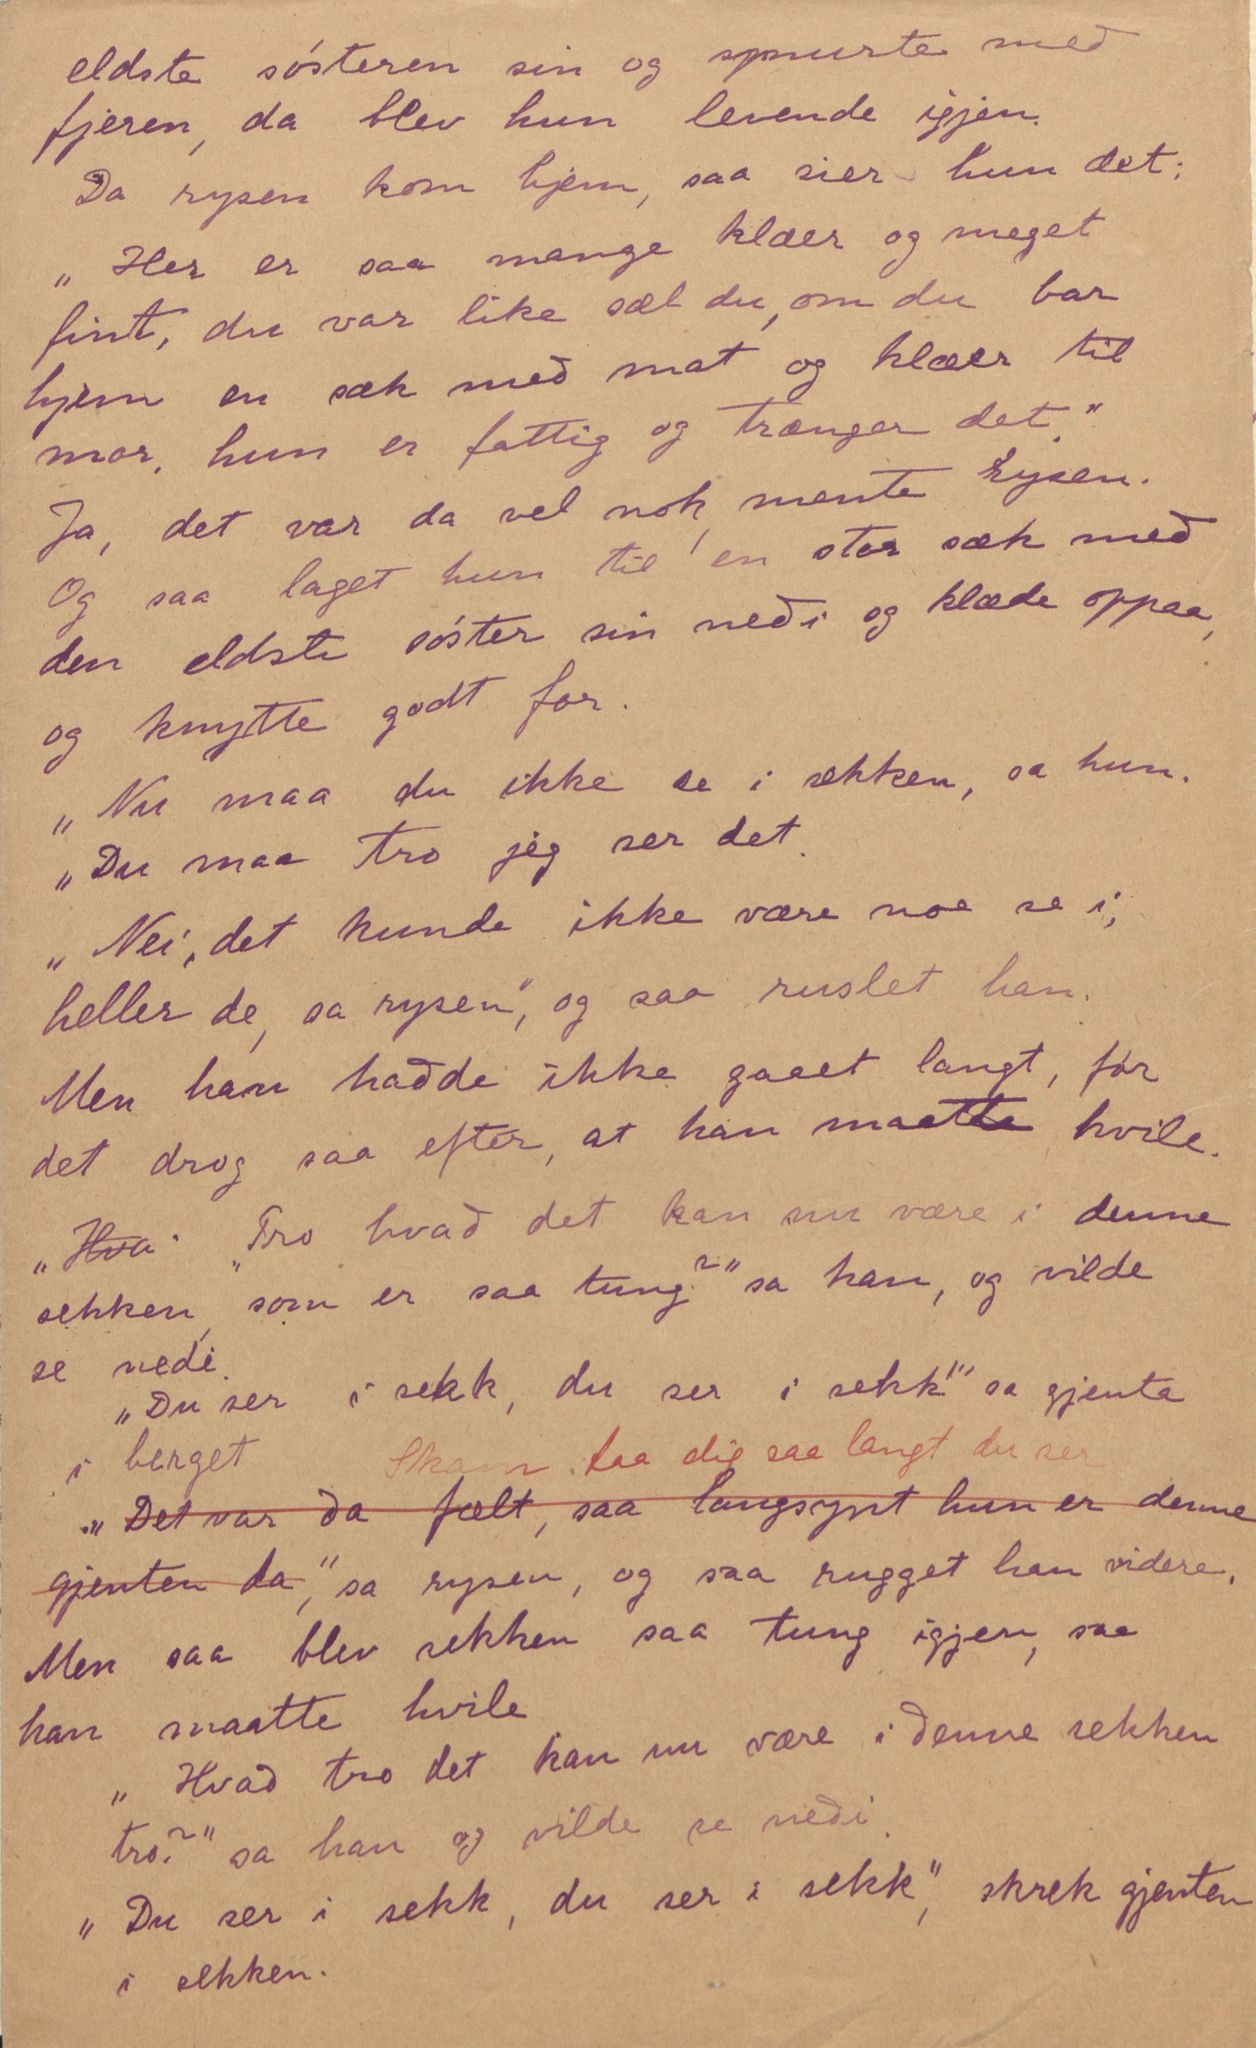 eldste sósteren sin og spurte með
fjeren, da blev hun levende igjen.
Da rysen kom hjem, saa sier hun det:
„Her er saa mange klæer og meget
fint, du var like sæl du, om du bar
hjem en sæk með mat og klæer til
mor, hun er fattig og trænger det."
Ja, det var da vel nok, mente Rysen.
Og saa laget hun til en stor sæk með
den eldste sóster sin neði og klæde oppaa,
og knytte godt for.
„Nu maa du ikke se i sekken, sa hun.
„Du maa tro jeg ser det.
„Nei, det kunde ikke være noe se i,
heller de, sa rysen", og saa ruslet han.
Men han haðde ikke gaaet langt, för
det drog saa efter, at han maatte hvile.
„Hva. „Tro hvað det kan nu være i denne
sekken, som er saa tung?" sa han, og vilde
se nedi.
„Du ser i sekk, du ser i sekk!" sa gjenta
i berget Skam faa dig saa langt du ser
„Det var ða fælt, saa langsynt hun er denne
gjenten da," sa rysen, og saa rugget han videre.
Men saa blev sekken saa tung igjen, saa
han maatte hvile
„Hvað tro det kan nu være i ðenne sekken
tro?" sa han og vilde se neði.
„Du ser i sekk, du ser i sekk", skrek gjenten
i sekken.